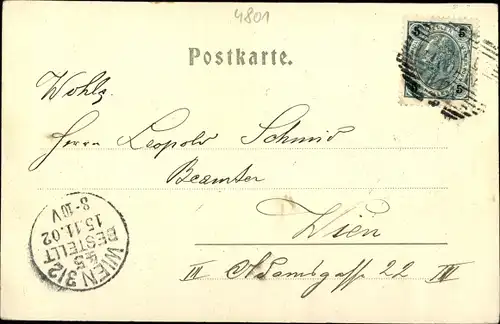 4801
Postkarte.
5 5
5 5
Wohlg.
Herrn Leopold Schmid
Beamter
Wien
III Adamsgasse 22 IV
WIEN 3/2
4 5
BESTELLT
15.11.02
8-10V